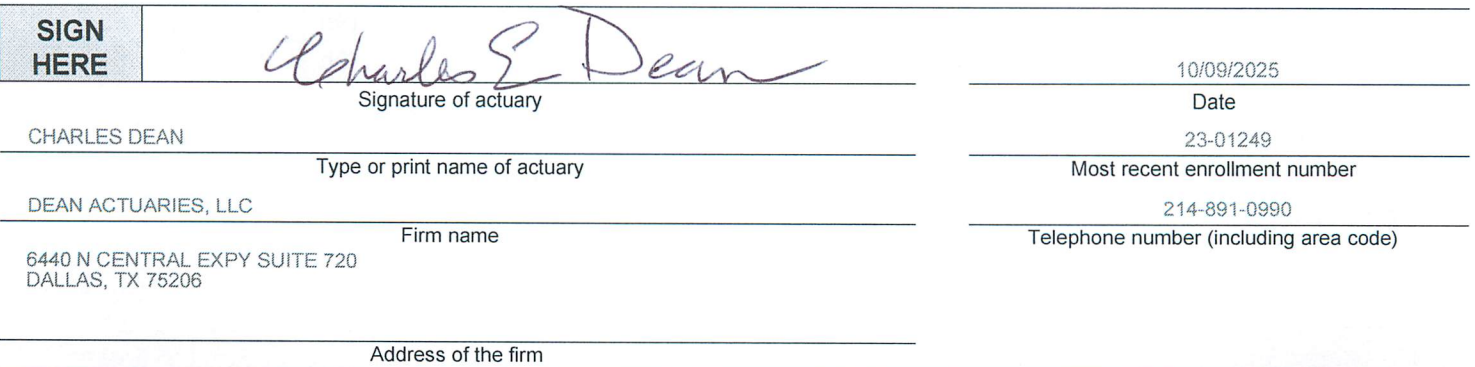 SIGN
HERE
Charles E Dean
10/09/2025
Signature of actuary
Date
CHARLES DEAN
23-01249
Type or print name of actuary
Most recent enrollment number
DEAN ACTUARIES, LLC
214-891-0990
Firm name
Telephone number (including area code)
6440 N CENTRAL EXPY SUITE 720
DALLAS, TX 75206
Address of the firm